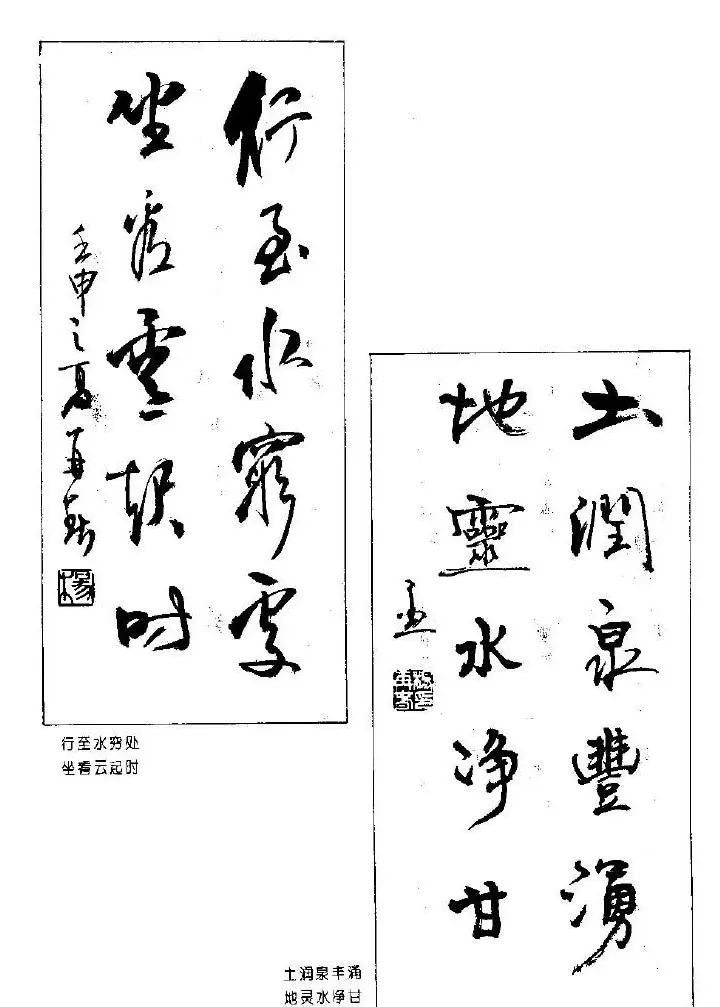 行至水窮處
坐看雲起時
壬申之夏再春
楊
行至水穷处
坐看云起时
土潤泉豐湧
地靈水净甘
土润泉丰涌
地灵水净甘